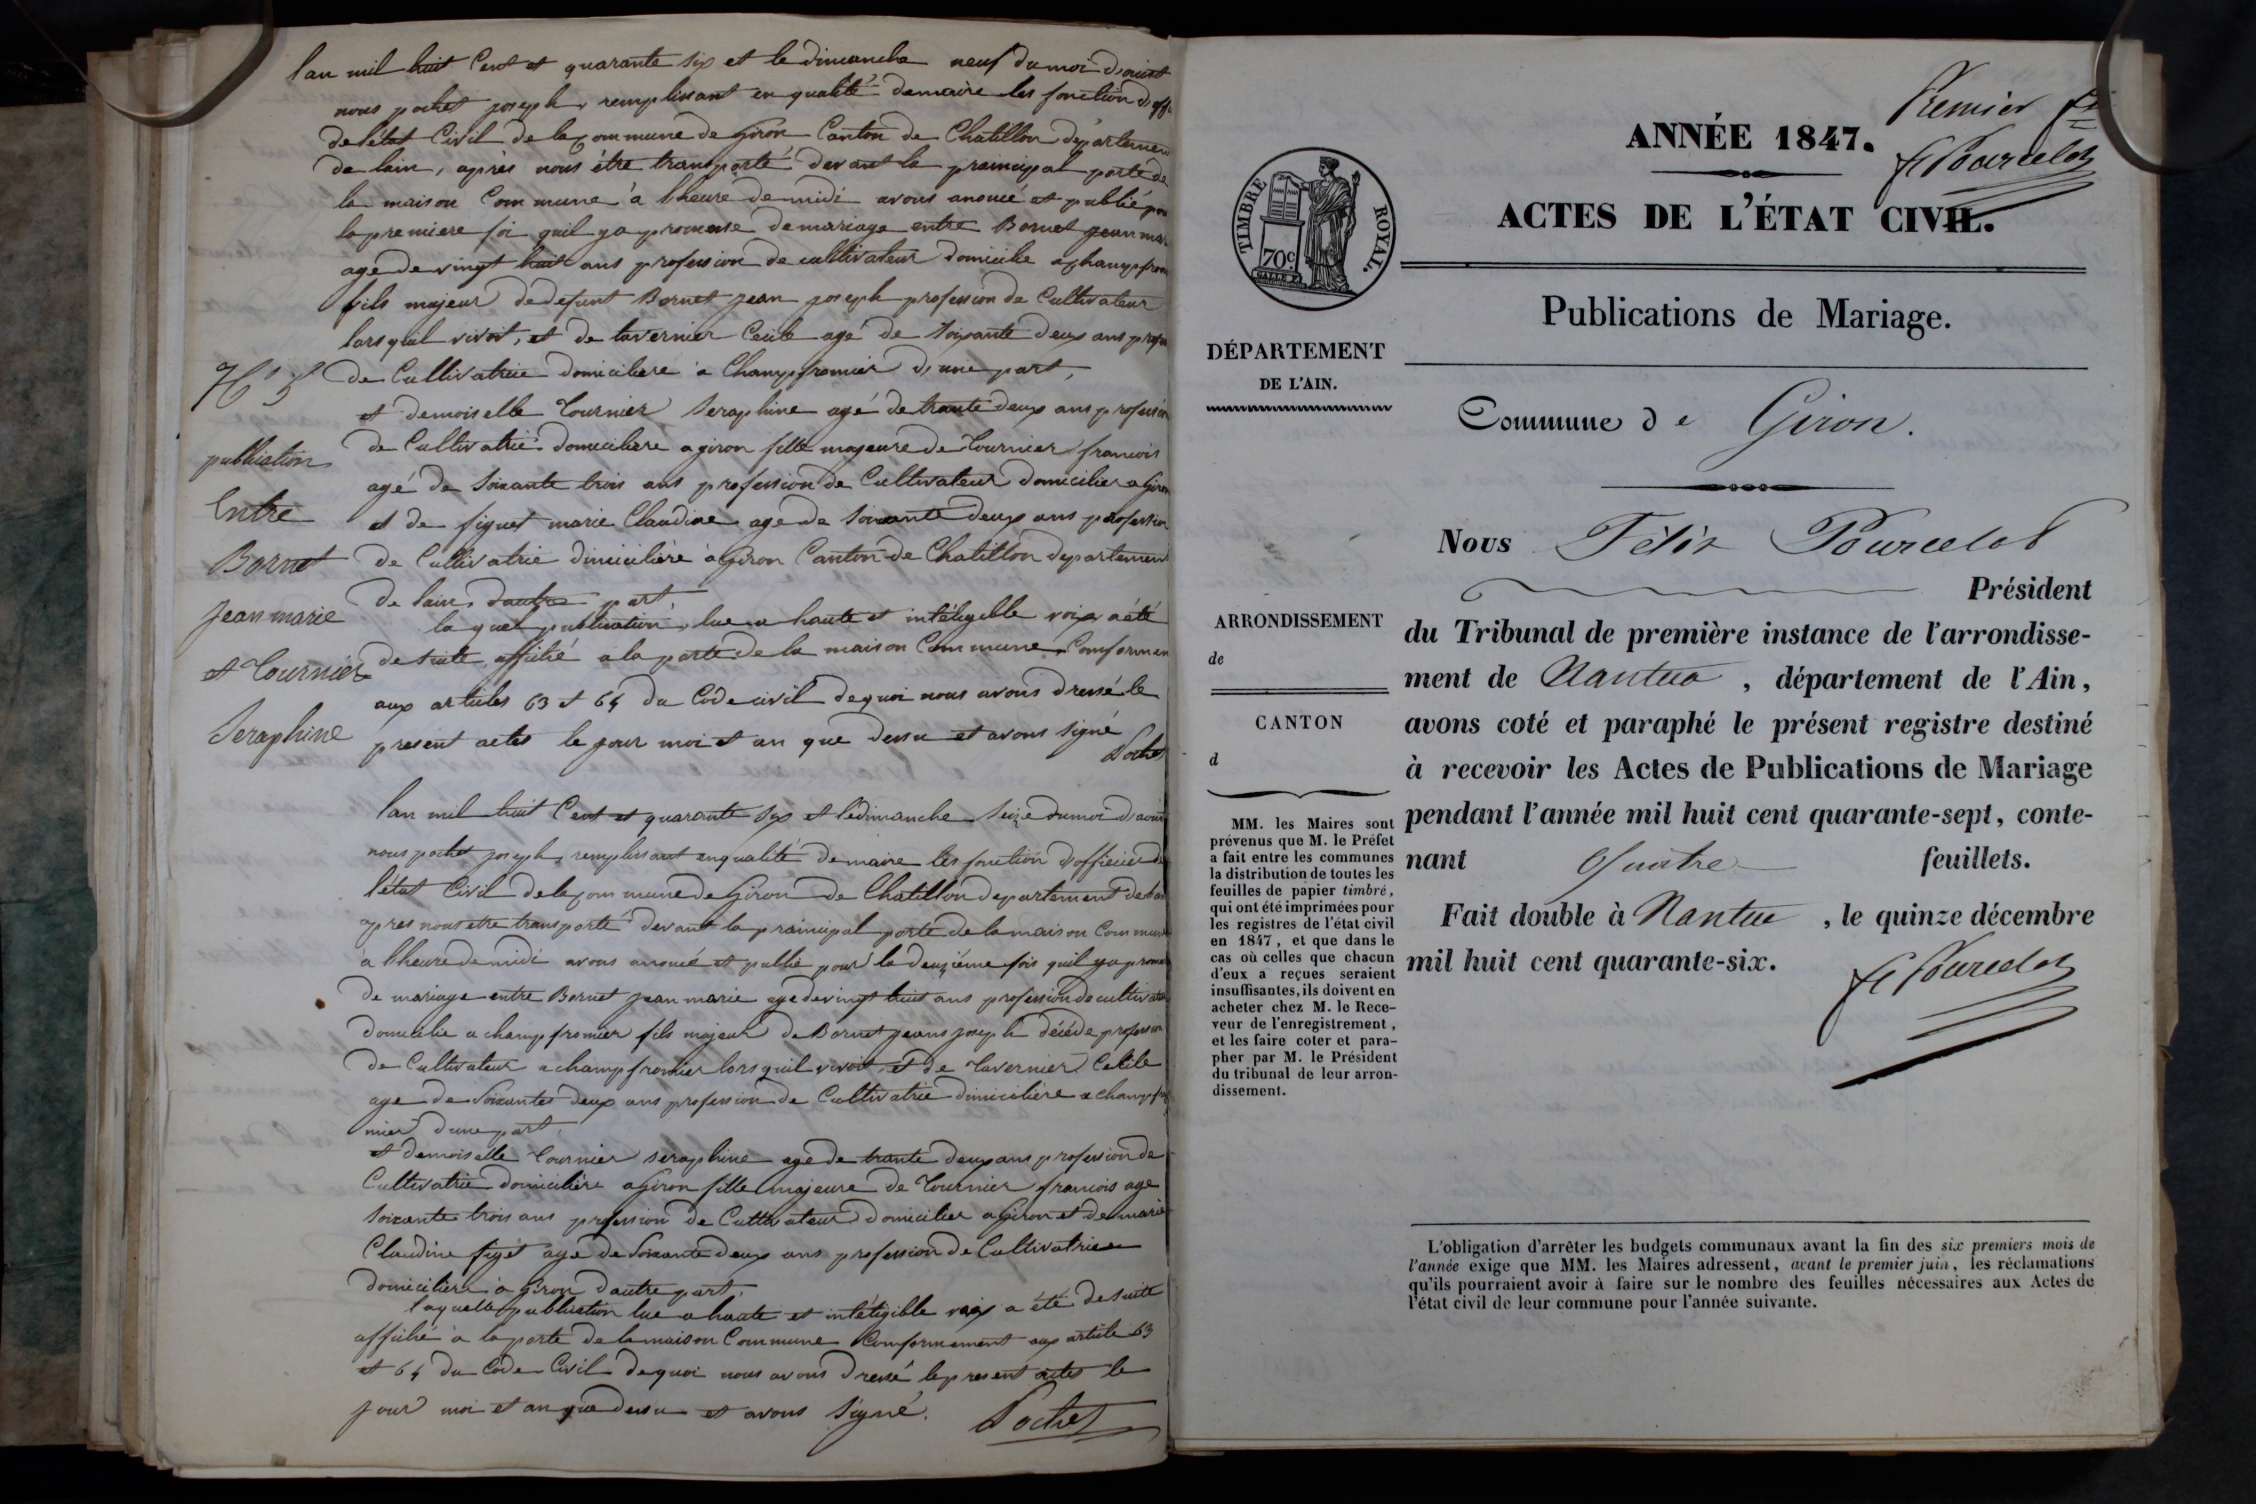 lan mil huit Cent et quarante six et le dimanche neuf du moi d'aoust
nous pochet joseph, remplissant en qualité de maire les fonction d'offi
de l'état Civil de la Commune de Giron Canton de Chatillon département
de lain, après nous être transporté devant la prainsipal porte de
la maison Commune à lheure de midi avons anoncé et publié pour
la premiere foi quil y a promesse de mariage entre Bornet jean mar
age de vingt huit ans profession de cultivateur domicilie a champfrom
fils majeur de defunt Bornet jean joseph profession de Cultivateur
lors quil vivoit, et de tavernier Cecile agé de soixante deux ans profes
de Cultivatrice domiciliere à Champfromier d'une part,
et demoiselle Tournier Seraphine agé de trante deux ans profession
de Cultivatrie domiciliere a giron fille majeure de Tournier francois
agé de soixante trois ans profession de Cultivateur domicilier a Giron
et de figuet marie Claudine age de soixante deux ans profession
de Cultivatrie dimicilière à Giron Canton de Chatillon departement
de lain, dautre part
la quel publication, lue a haute et inteligible voix a été
de suite affiché a la porte de la maison Commune Conformen
aux articles 63 et 64 du Code civil de quoi nous avons dressé le
present actes le jour moi et an que dessu et avons signé
Pochet
N° 5
publiation
Entre
Bornet
Jean marie
et Tournier
Seraphine
lan mil huit Cent et quarante six et le dimanche seize du moi d'aout
nous pochet joseph, remplissant en qualité de maire les fonction d'officier de
l'état Civil de la Commune de Giron de Chatillon departement de lain
apres nous etre transporté devant la prainsipal porte de la maison Commune
a lheure de midi avons anoncé et publié pour la deuxiéme fois quil y a promes
de mariage entre Bornet jean marie age de vingt huit ans profession de cultivateur
domicilie a champfromier fils majeur de Bornet jeans joseph décéde profession
de Cultivateur a champfromier lors quil vivoit, et de Tavernier Cecile
age de soixantes deux ans profession de Cultivatrie dimiciliere a champfro
mier dune part,
et demoiselle Tournier seraphine age de trante deux ans profession de
Cultivatrie domiciliere a Giron fille majeure de Tournier francois age
soixante trois ans profession de Cultivateur domicilier a Giron et de marie
Claudine figet agé de Soixante deux ans profession de Cultivatrice
domiciliere à Giron dautre part,
laquelle publiation lue a haute et intéligible voix a été de suite
affiché à la porte de la maison Commune Conformement aux article 63
et 64 du Code Civil de quoi nous avons dressé le present actes le
jour moi et an que dessu et avons signé.
Pochet
Premier
F Pourcelot
ANNÉE 1847.
ACTES DE L'ÉTAT CIVIL.
TIMBRE ROYAL.
70c
Publications de Mariage.
DÉPARTEMENT
DE L'AIN.
Commune de Giron.
Nous Félix Pourcelot
Président
du Tribunal de première instance de l'arrondisse-
ment de Nantua, département de l'Ain,
avons coté et paraphé le présent registre destiné
à recevoir les Actes de Publications de Mariage
pendant l'année mil huit cent quarante-sept, conte-
nant Quatre feuillets.
Fait double à Nantua, le quinze décembre
mil huit cent quarante-six.
F Pourcelot
ARRONDISSEMENT
de
CANTON
d
MM. les Maires sont
prévenus que M. le Préfet
a fait entre les communes
la distribution de toutes les
feuilles de papier timbré,
qui ont été imprimées pour
les registres de l'état civil
en 1847, et que dans le
cas où celles que chacun
d'eux a reçues seraient
insuffisantes, ils doivent en
acheter chez M. le Rece-
veur de l'enregistrement,
et les faire coter et para-
pher par M. le Président
du tribunal de leur arron-
dissement.
L'obligation d'arrêter les budgets communaux avant la fin des six premiers mois de
l'année exige que MM. les Maires adressent, avant le premier juin, les réclamations
qu'ils pourraient avoir à faire sur le nombre des feuilles nécessaires aux Actes de
l'état civil de leur commune pour l'année suivante.